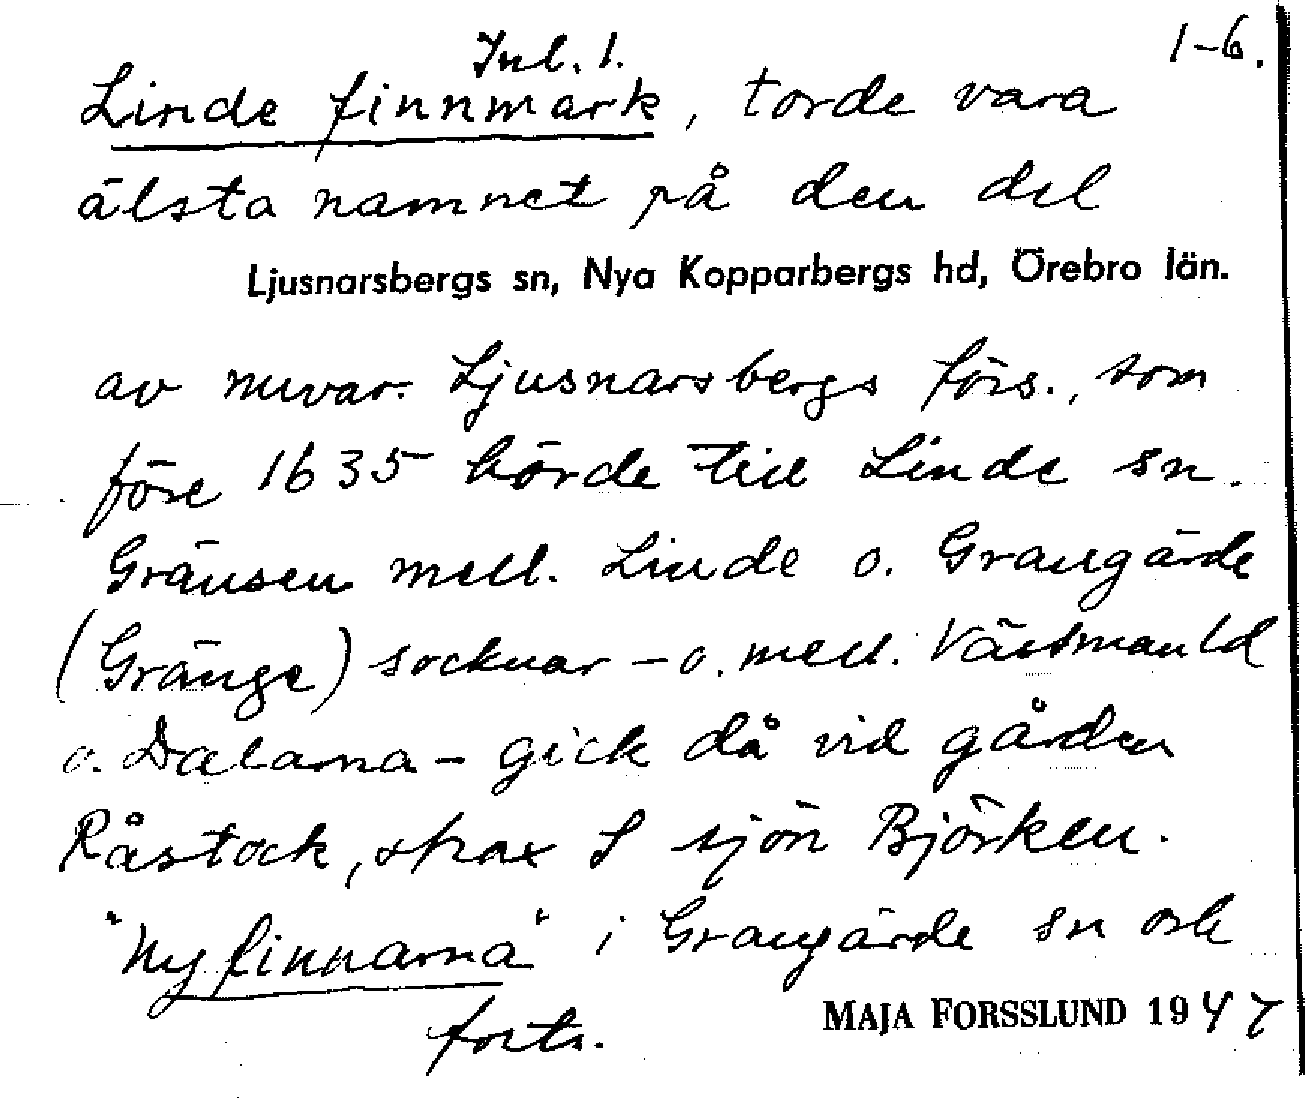 Inl. 1.
1-6.
Linde finnmark, torde vara
älsta namnet på den del
Ljusnarsbergs sn, Nya Kopparbergs hd, Örebro län.
av nuvar. Ljusnarsbergs förs., som
före 1635 hörde till Linde sn.
Gränsen mell. Linde o. Grangärde
(Gränge) socknar – o. mell. Västmanld
o. Dalarna – gick då vid gården
Råstock, strax S sjön Björken.
"Nyfinnarna" i Grangärde sn och
forts.
MAJA FORSSLUND 1947